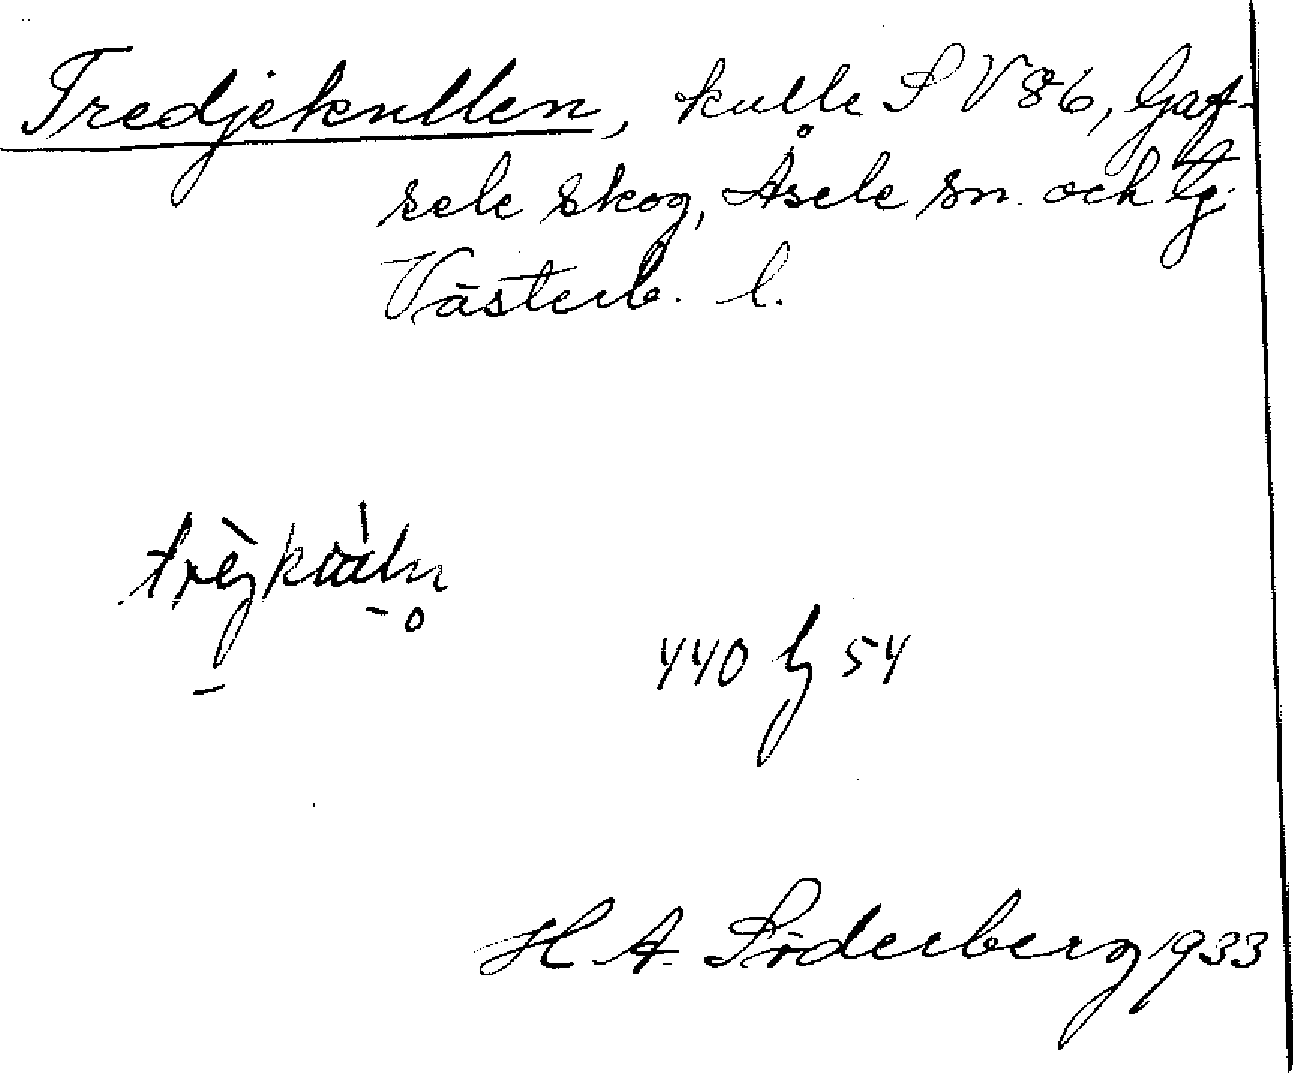 Tredjekullen, kulle S V 86, Gaf-
sele skog, Åsele sn. och tg.
Västerb. l.
440 54
H A Söderberg 1933